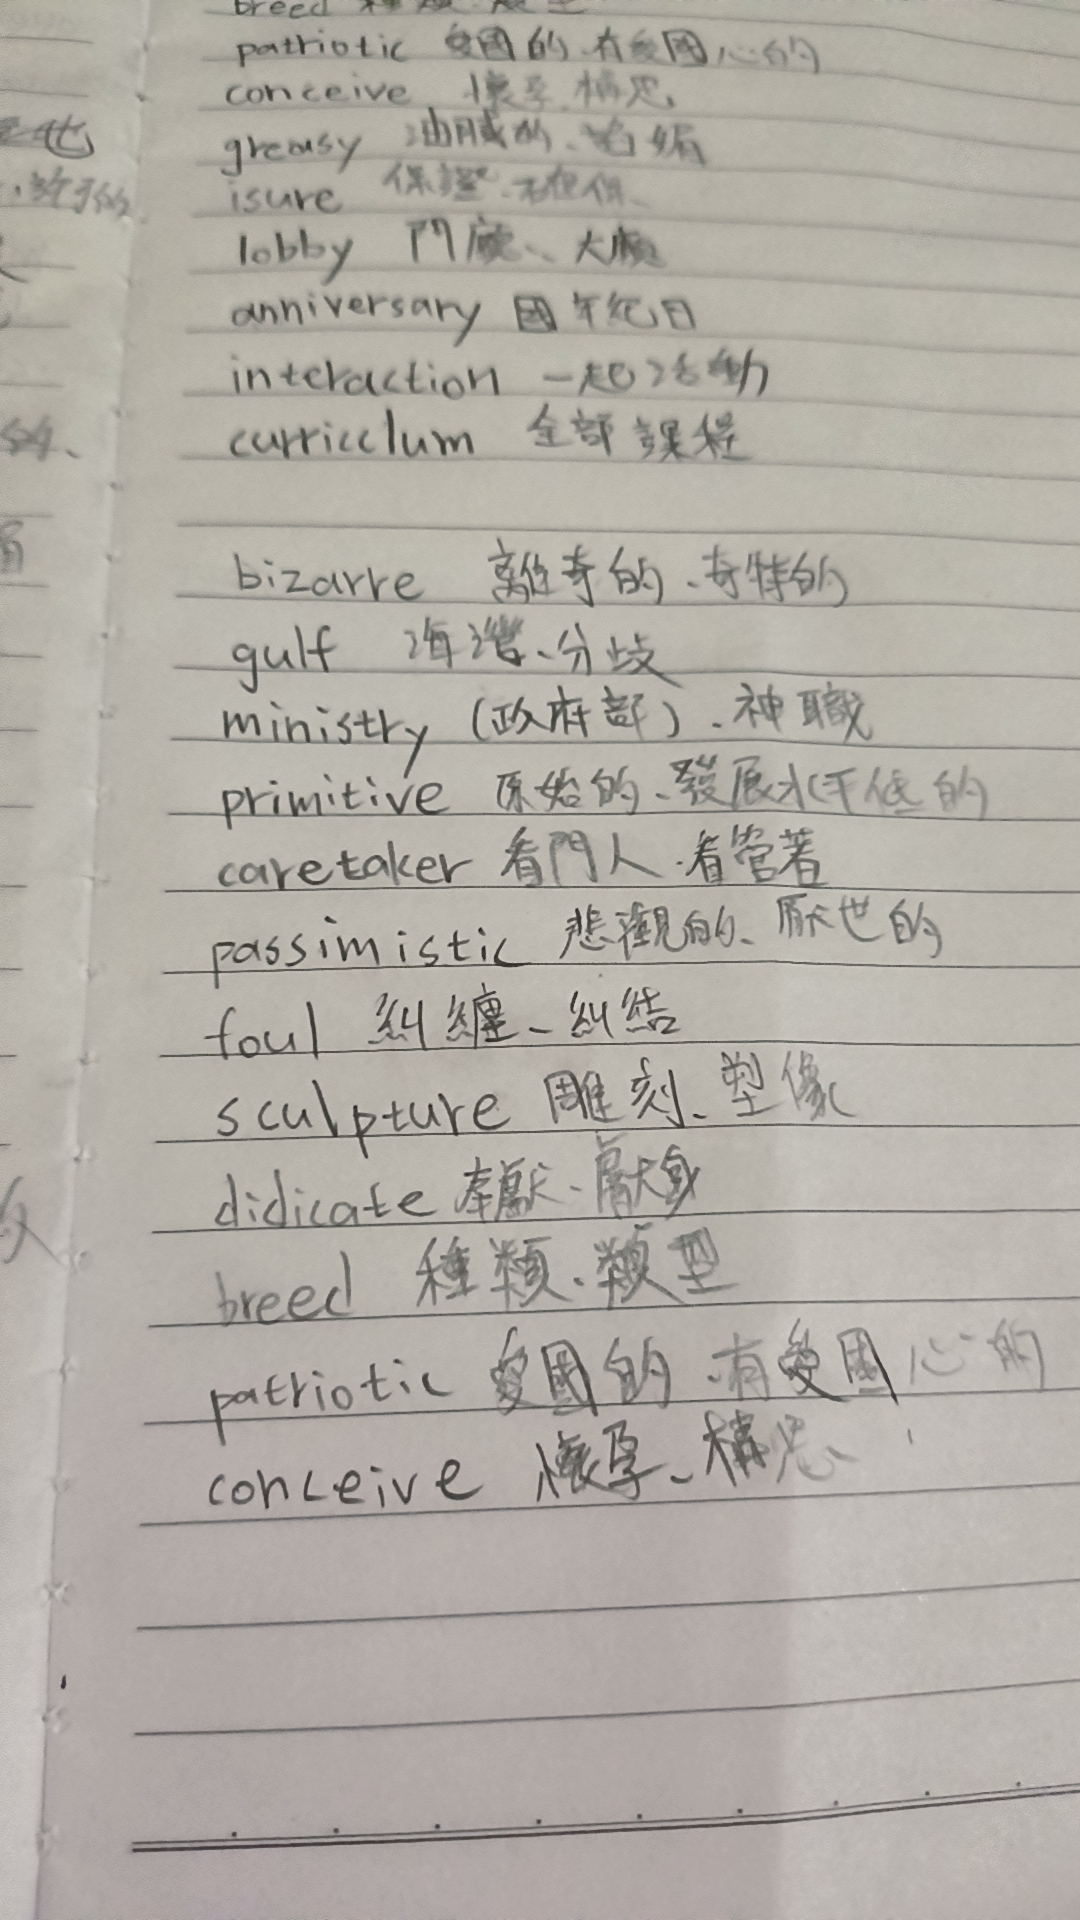 breed 種類、類型
patriotic 愛國的、有愛國心的
conceive 懷孕、構思、
greasy 油膩的、諂媚
isure 保證、擔保、
lobby 門廳、大廳
anniversary 國年紀日
interaction 一起活動
curricclum 全部課程
bizarre 離奇的、奇特的
gulf 海灣、分歧
ministry (政府部)、神職
primitive 原始的、發展水平低的
caretaker 看門人、看管著
passimistic 悲觀的、厭世的
foul 糾纏、糾結
sculpture 雕刻、塑像
didicate 奉獻、獻身
breed 種類、類型
patriotic 愛國的、有愛國心的
conceive 懷孕、構思、